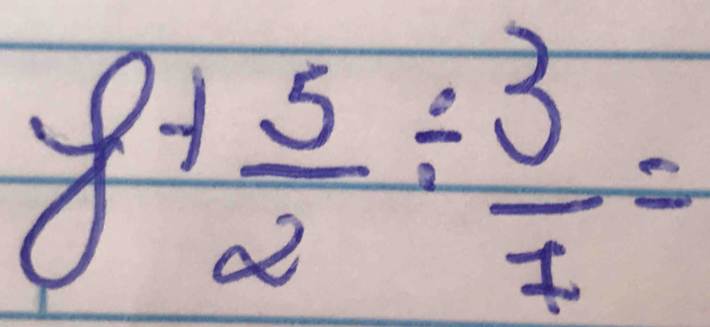 8 + 5/2 ÷ 3/7 =